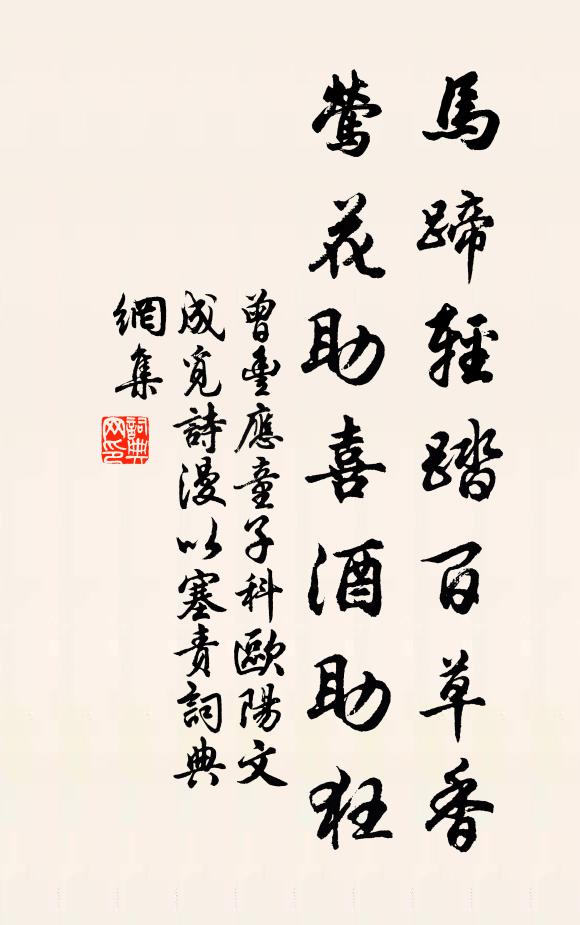 馬蹄輕踏百草香
鶯花助喜酒助狂
曾豐應童子科歐陽文
成覓詩漫以塞責詞典
網集
詞典
网印